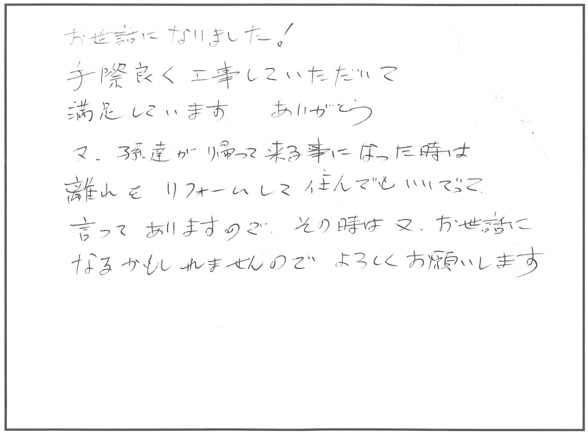 お世話になりました！
手際良く工事していただいて
満足しています　ありがとう
又、孫達が帰って来る事になった時は
離れをリフォームして住んでもいいでって
言ってありますので、その時は又、お世話に
なるかもしれませんので よろしくお願いします